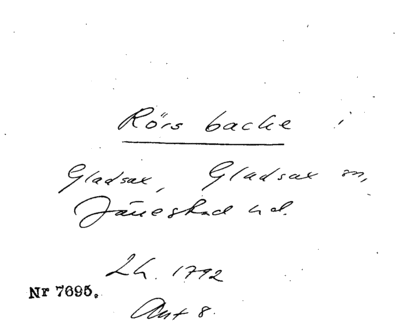 Rörs backe
Gladsax, Gladsax sn,
Järrestad hd.
Lh. 1792
Akt 8.
Nr 7695.